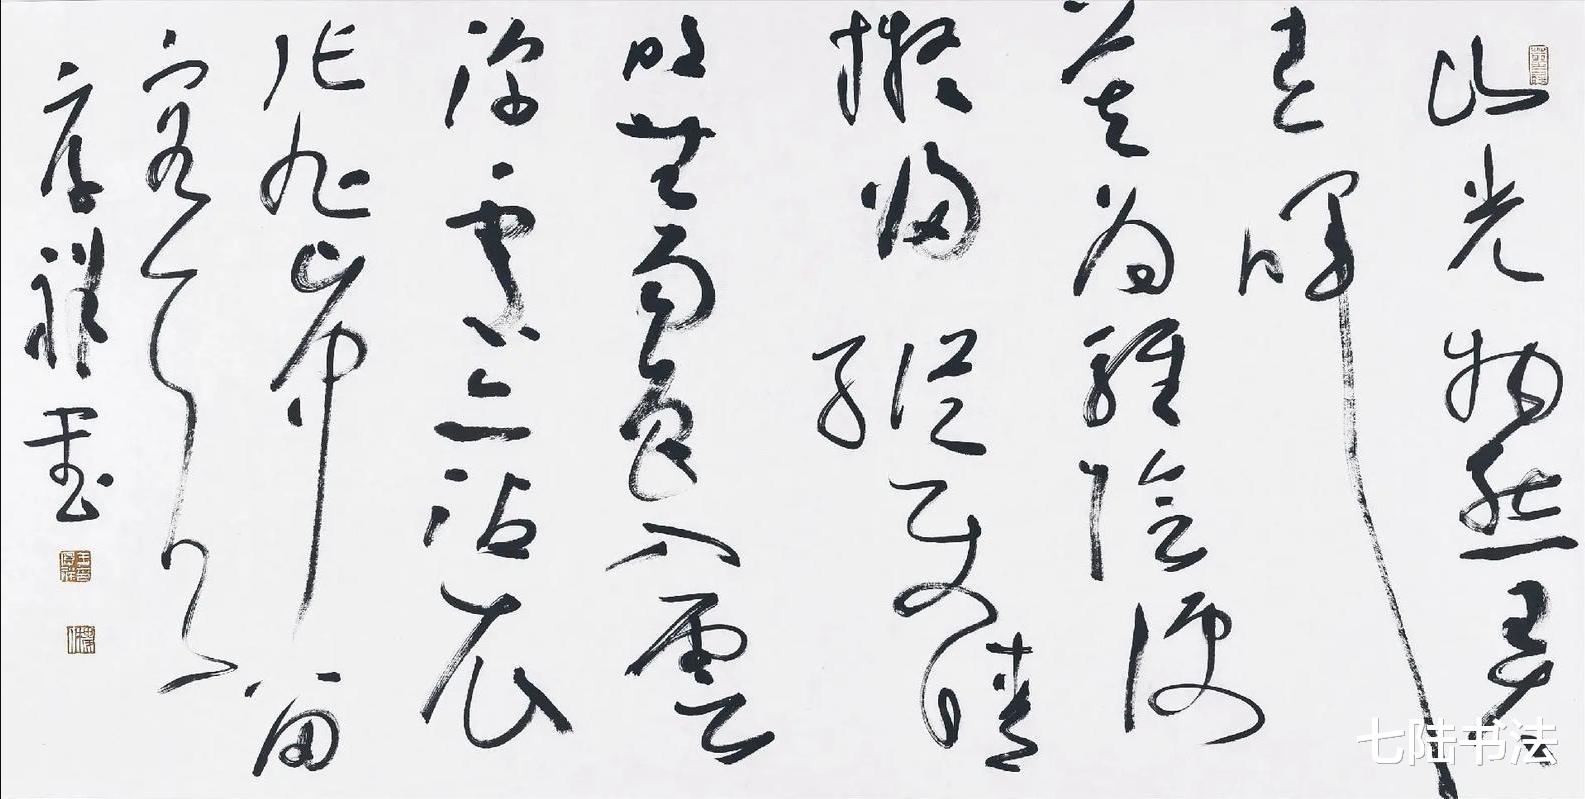 山光物態弄
春暉
莫為輕陰便
擬歸縱使晴
明無雨色入雲
深處亦沾衣
張旭山中留
客
厚祥書
七陆书法